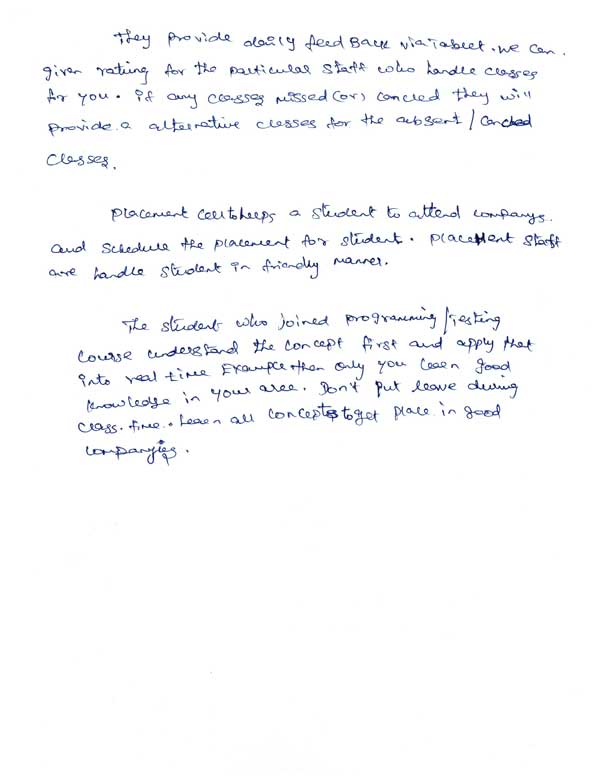 They provide daily feed Back via Tablet. we can.
given rating for the particular staff who handle classes
for you. if any classes missed (or) cancled they will
provide a alternative classes for the absent / Cancled
Classes.
placement cell to helps a student to attend companys.
and schedule the placement for student. placement staff
are handle student in friendly manner.
The student who joined programming / Testing
course understand the concept first and apply that
into real time Example then only you learn good
knowledge in your area. Don't put leave during
class. time. Learn all concepts to get place in good
companyies.